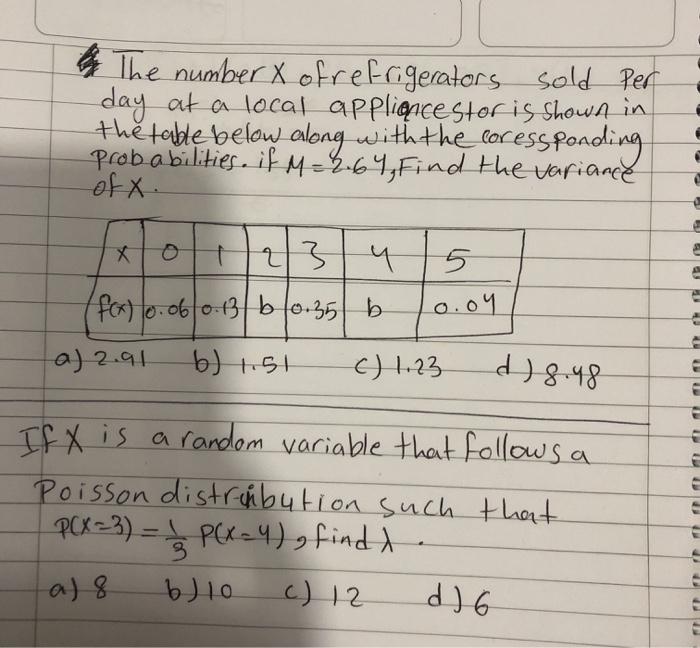 The number X of refrigerators sold Per
day at a local appliance stor is shown in
the table below along with the coressponding
Probabilities. if M=2.64, Find the variance
of X.
x 0 1 2 3 4 5
f(x) 0.06 0.13 b 0.35 b 0.04
a) 2.91 b) 1.51 c) 1.23 d) 8.48
If X is a random variable that follows a
Poisson distribution such that
P(X=3) = 1/3 P(X=4), find λ.
a) 8 b) 10 c) 12 d) 6